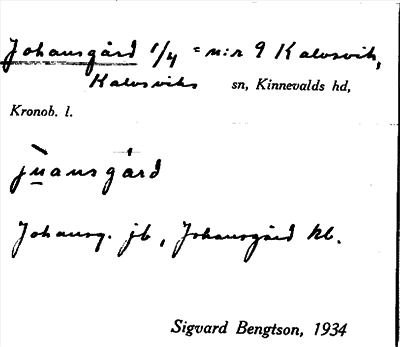 Johansgård 1/4 = n:r 9 Kalvsvik,
Kalvsviks sn, Kinnevalds hd,
Kronob. l.
jùansgård
Johansg. jb, Johansgård kb.
Sigvard Bengtson, 1934